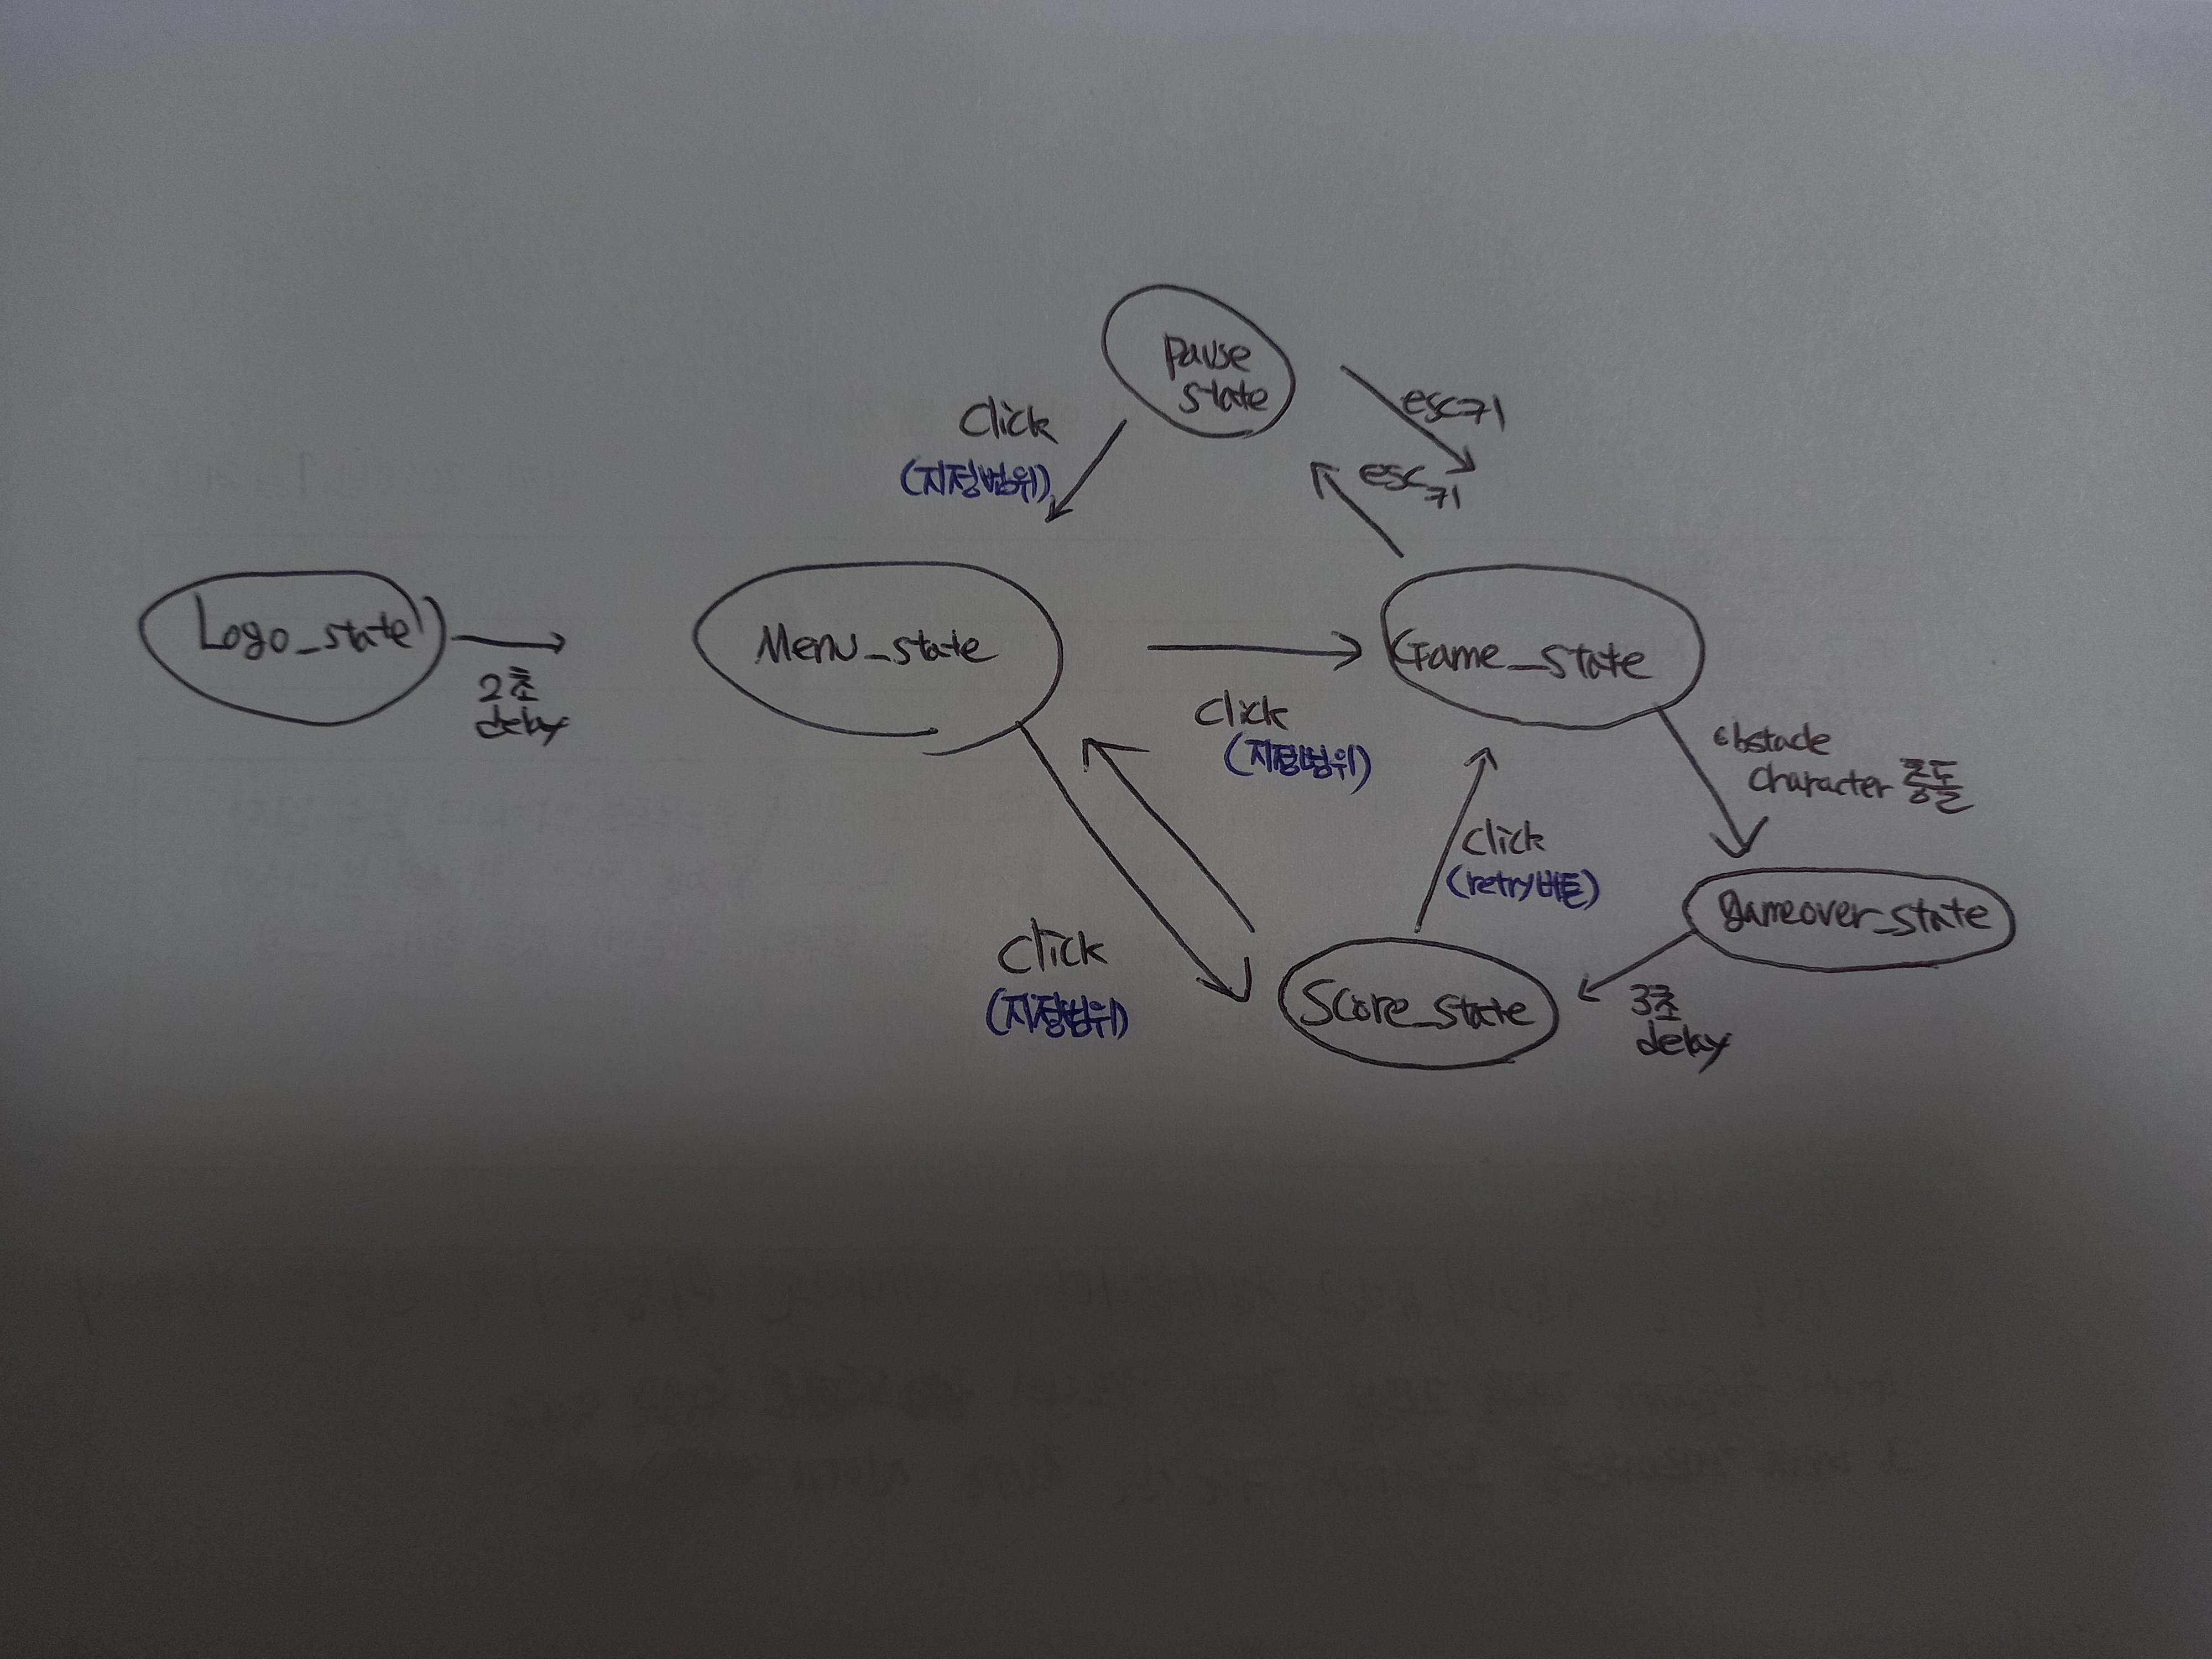 pause
state
Click
(지정범위)
esc키
esc키
Logo_state
2초
delay
Menu_state
Click
(지정범위)
Game_state
obstacle
character 충돌
Click
(retry버튼)
gameover_state
Click
(지정범위)
Score_state
3초
delay